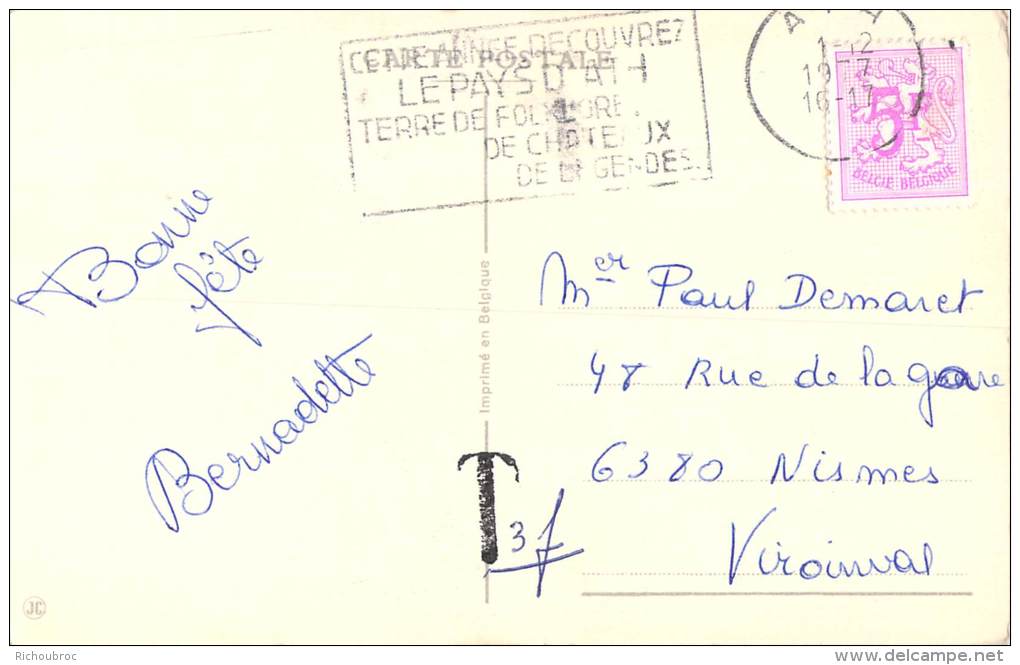 CARTE POSTALE
CETTE ANNEE DECOUVREZ
LE PAYS D'ATH
TERRE DE FOLKLORE,
DE CHATEAUX
DE LEGENDES
ATH
1-12
19 7
16-17
5F
BELGIE BELGIQUE
Bonne
fête
Bernadette
Imprimé en Belgique
Mer Paul Demaret
48 Rue de la gare
6380 Nismes
Viroinval
T
3 f
JC
Richoubroc